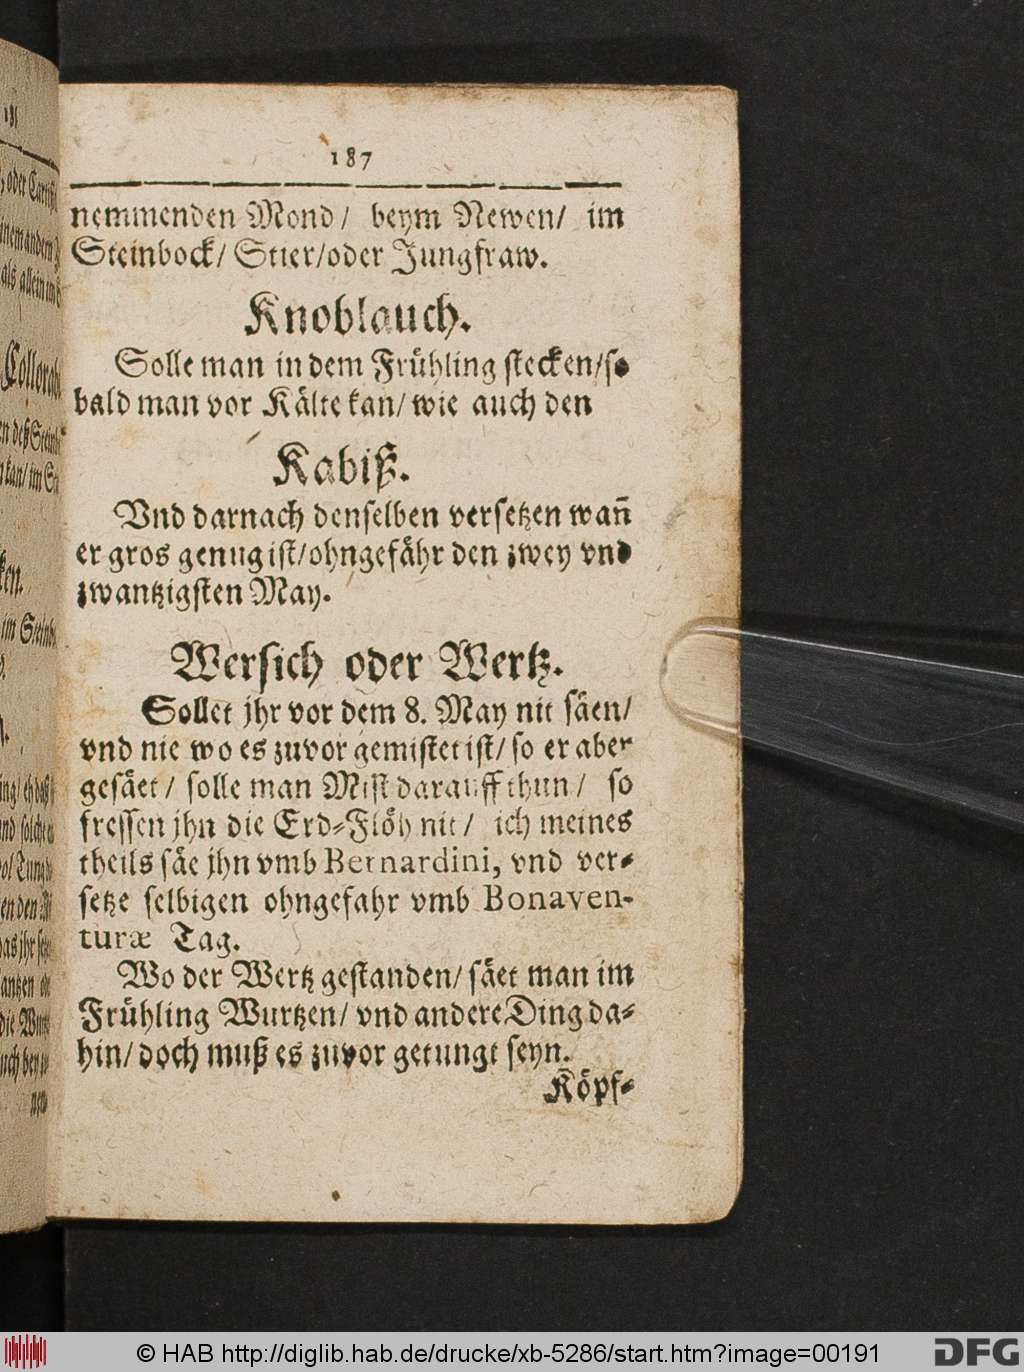 187
nemmenden Mond/ beym Newen/ im
Steinbock/ Stier/oder Jungfraw.
Knoblauch.
Solle man in dem Frühling stecken/so
bald man vor Kälte kan/ wie auch den
Kabiß.
Vnd darnach denselben versetzen wañ
er gros genug ist/ohngefähr den zwey vnd
zwantzigsten May.
Wersich oder Wertz.
Sollet jhr vor dem 8. May nit säen/
vnd nie wo es zuvor gemistet ist/ so er aber
gesäet/ solle man Mist darauff thun/ so
fressen jhn die Erd-Flöh nit/ ich meines
theils säe jhn vmb Bernardini, vnd ver-
setze selbigen ohngefahr vmb Bonaven-
turæ Tag.
Wo der Wertz gestanden/ säet man im
Frühling Wurtzen/ vnd andere Ding da-
hin/ doch muß es zuvor getungt seyn.
Köpf-
© HAB http://diglib.hab.de/drucke/xb-5286/start.htm?image=00191
DFG